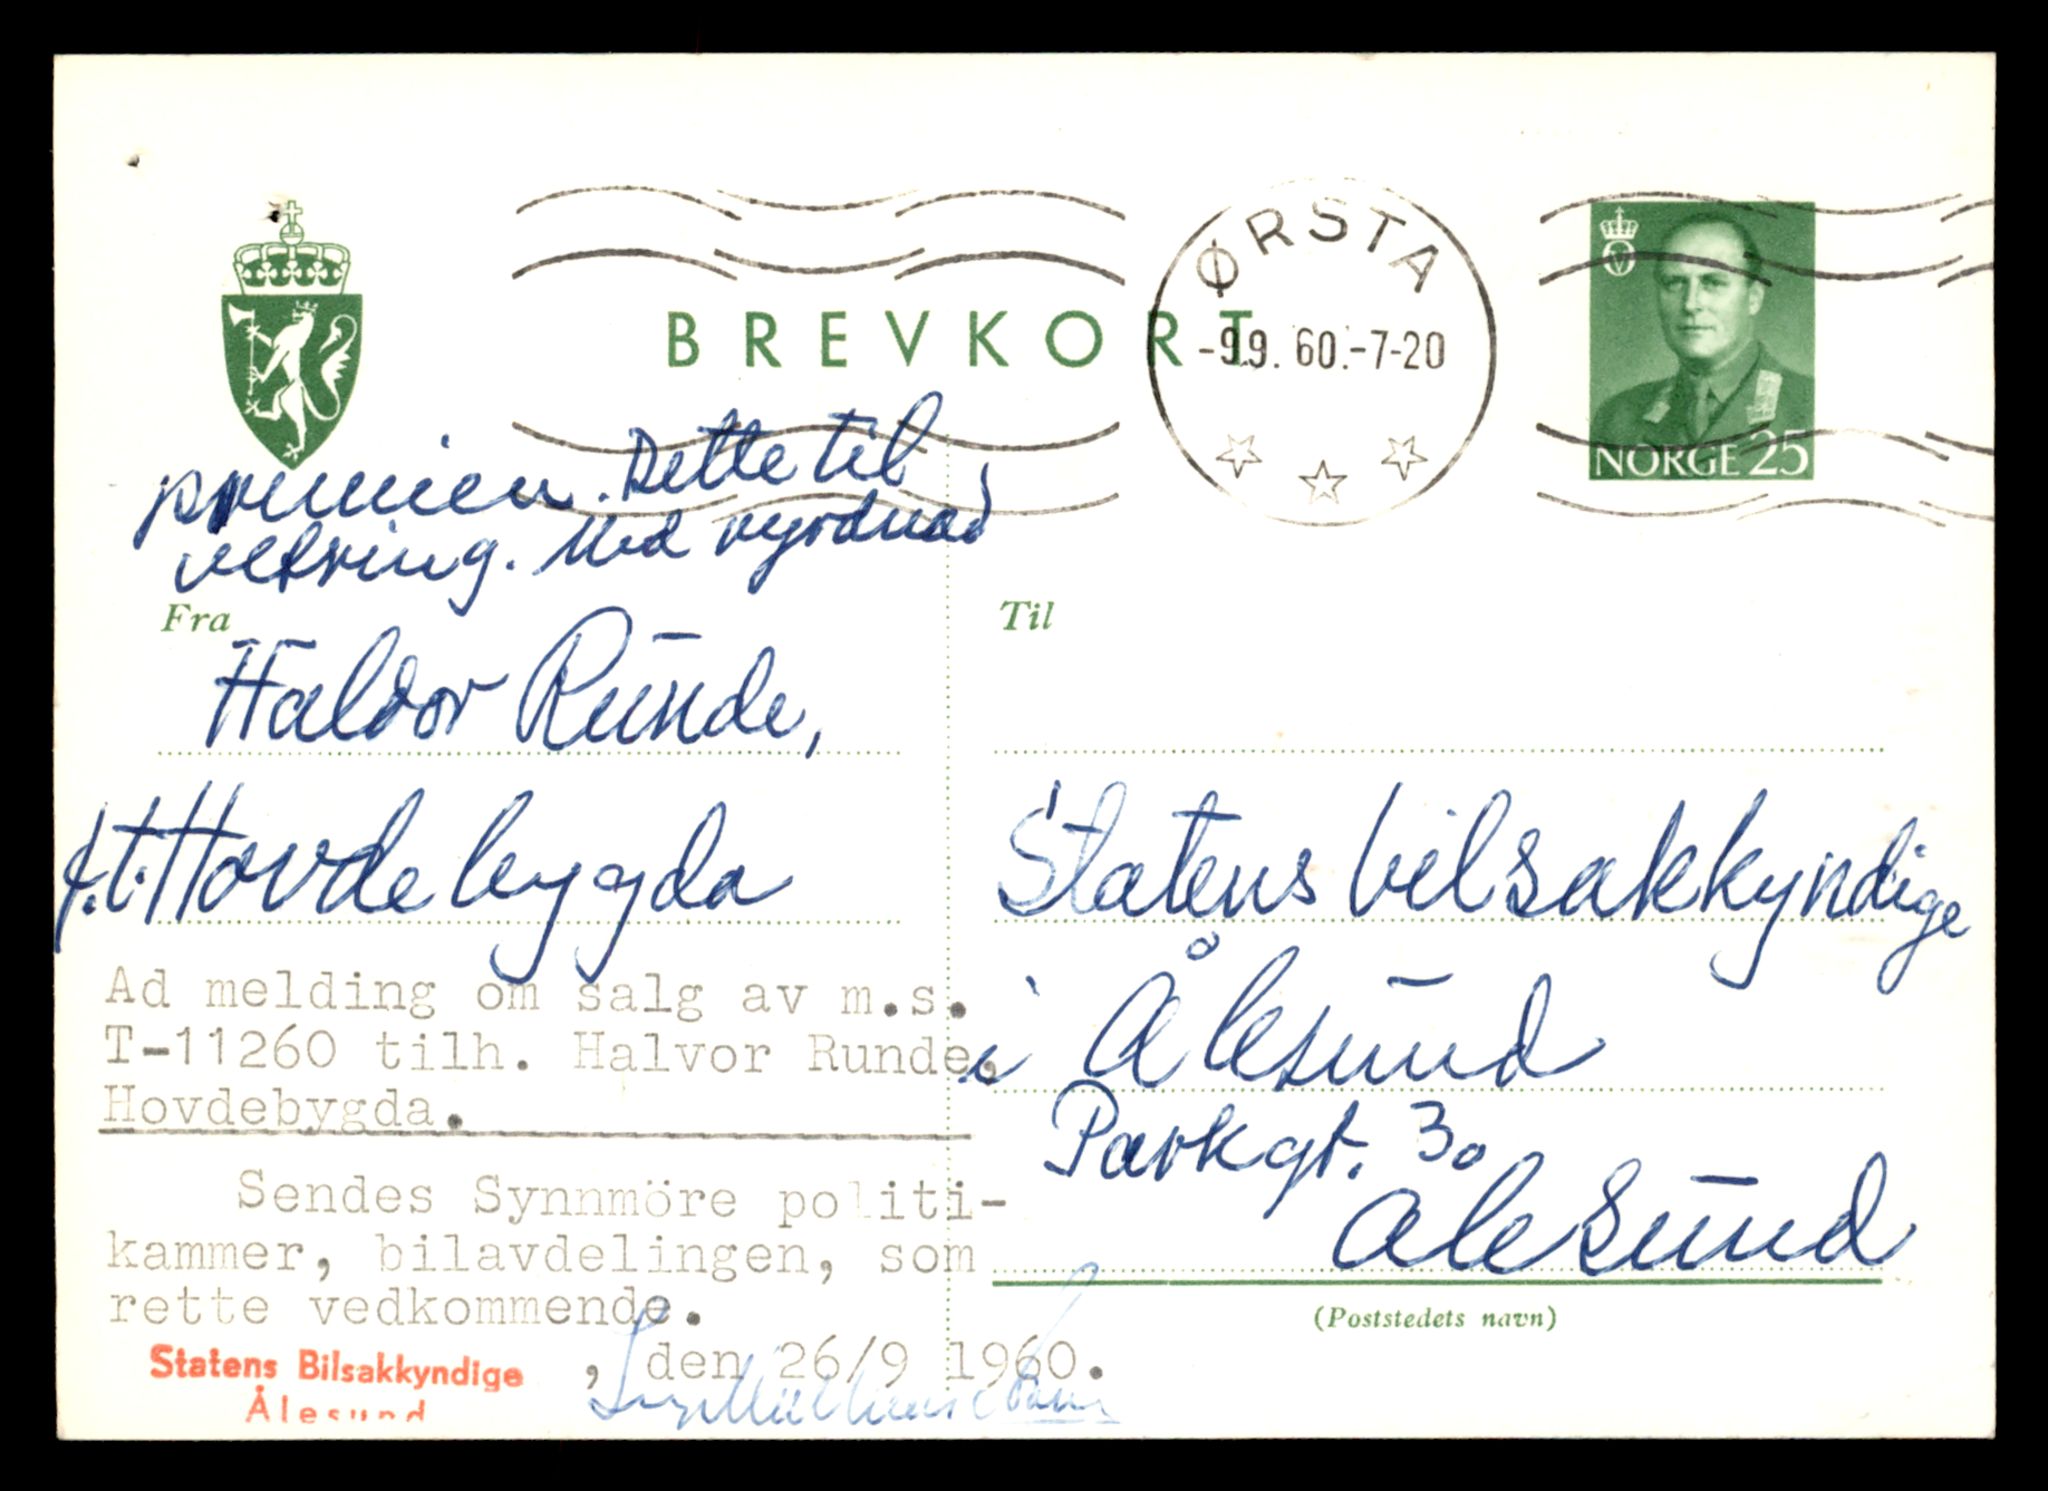 BREVKORT
ØRSTA
-9.9.60.-7-20
NORGE 25
premien. Dette til
vetring. Med vyrdnad
Fra
Haldor Runde,
p.t. Hovdebygda
Ad melding om salg av m.s.
T-11260 tilh. Halvor Runde,
Hovdebygda.
Sendes Synnmöre politi-
kammer, bilavdelingen, som
rette vedkommende.
Statens Bilsakkyndige
Ålesund
, den 26/9 1960.
Til
Statens bilsakkyndige
i Ålesund
Parkgt. 3o
Ålesund
(Poststedets navn)